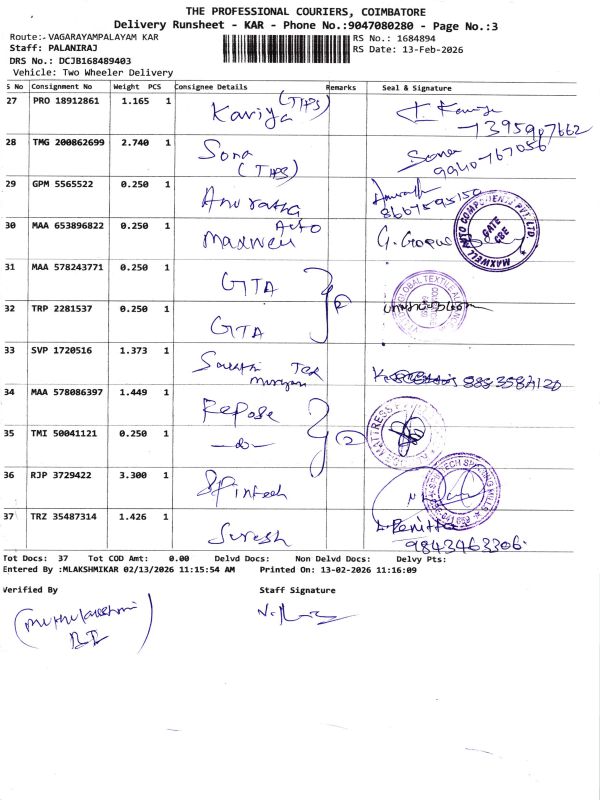 THE PROFESSIONAL COURIERS, COIMBATORE
Delivery Runsheet - KAR - Phone No.:9047080280 - Page No.:3
Route:- VAGARAYAMPALAYAM KAR
RS No.: 1684894
Staff: PALANIRAJ
RS Date: 13-Feb-2026
DRS No.: DCJB168489403
Vehicle: Two Wheeler Delivery
S No Consignment No Weight PCS Consignee Details Remarks Seal & Signature
27 PRO 18912861 1.165 1 Kaviya (THPS)
28 TMG 200862699 2.740 1 Sona (THPS) Sona 9940767056
29 GPM 5565522 0.250 1 Anuratha 8667595150
30 MAA 653896822 0.250 1 Maxwell Auto MAXWELL AUTO COMPONENTS PVT. LTD. GATE CBE
31 MAA 578243771 0.250 1 GTA GLOBAL TEXTILE
32 TRP 2281537 0.250 1 GTA
33 SVP 1720516 1.373 1 Tex
34 MAA 578086397 1.449 1 Repose MATTRESS
35 TMI 50041121 0.250 1 -do- 2
36 RJP 3729422 3.300 1 Spintech SPINNING MILLS
37 TRZ 35487314 1.426 1 Suresh 9843463306
Tot Docs: 37 Tot COD Amt: 0.00 Delvd Docs: Non Delvd Docs: Delvy Pts:
Entered By :MLAKSHMIKAR 02/13/2026 11:15:54 AM Printed On: 13-02-2026 11:16:09
Verified By Staff Signature